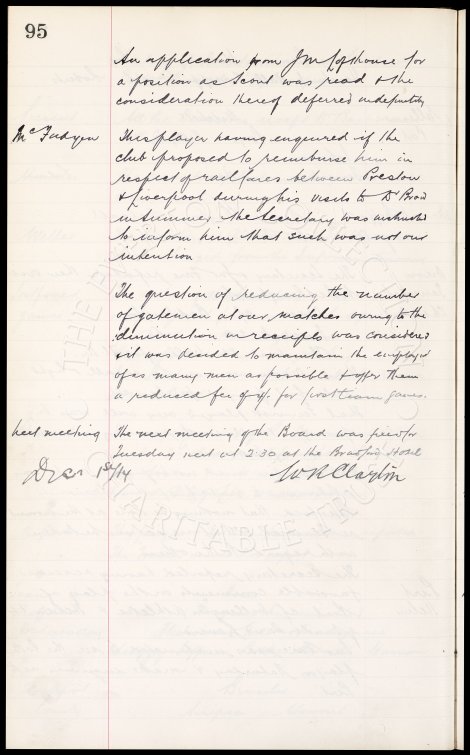 95
An application from J W Lofthouse for
a position as Scout was read & the
consideration thereof deferred indefinitely
McFadyen This player having enquired if the
club proposed to reimburse him in
respect of rail fares between Preston
& Liverpool during his visits to Dr Broad
in Summer the Secretary was instructed
to inform him that such was not our
intention
The question of reducing the number
of gatemen at our matches owing to the
diminution in receipts was considered
& it was decided to maintain the employ of
of as many men as possible & offer them
a reduced fee of for first team games.
next meeting The next meeting of the Board was fixed for
Tuesday next at 2.30 at the Bradford Hotel
Decr 1st/14 W R Clayton
CHARITABLE TRUST